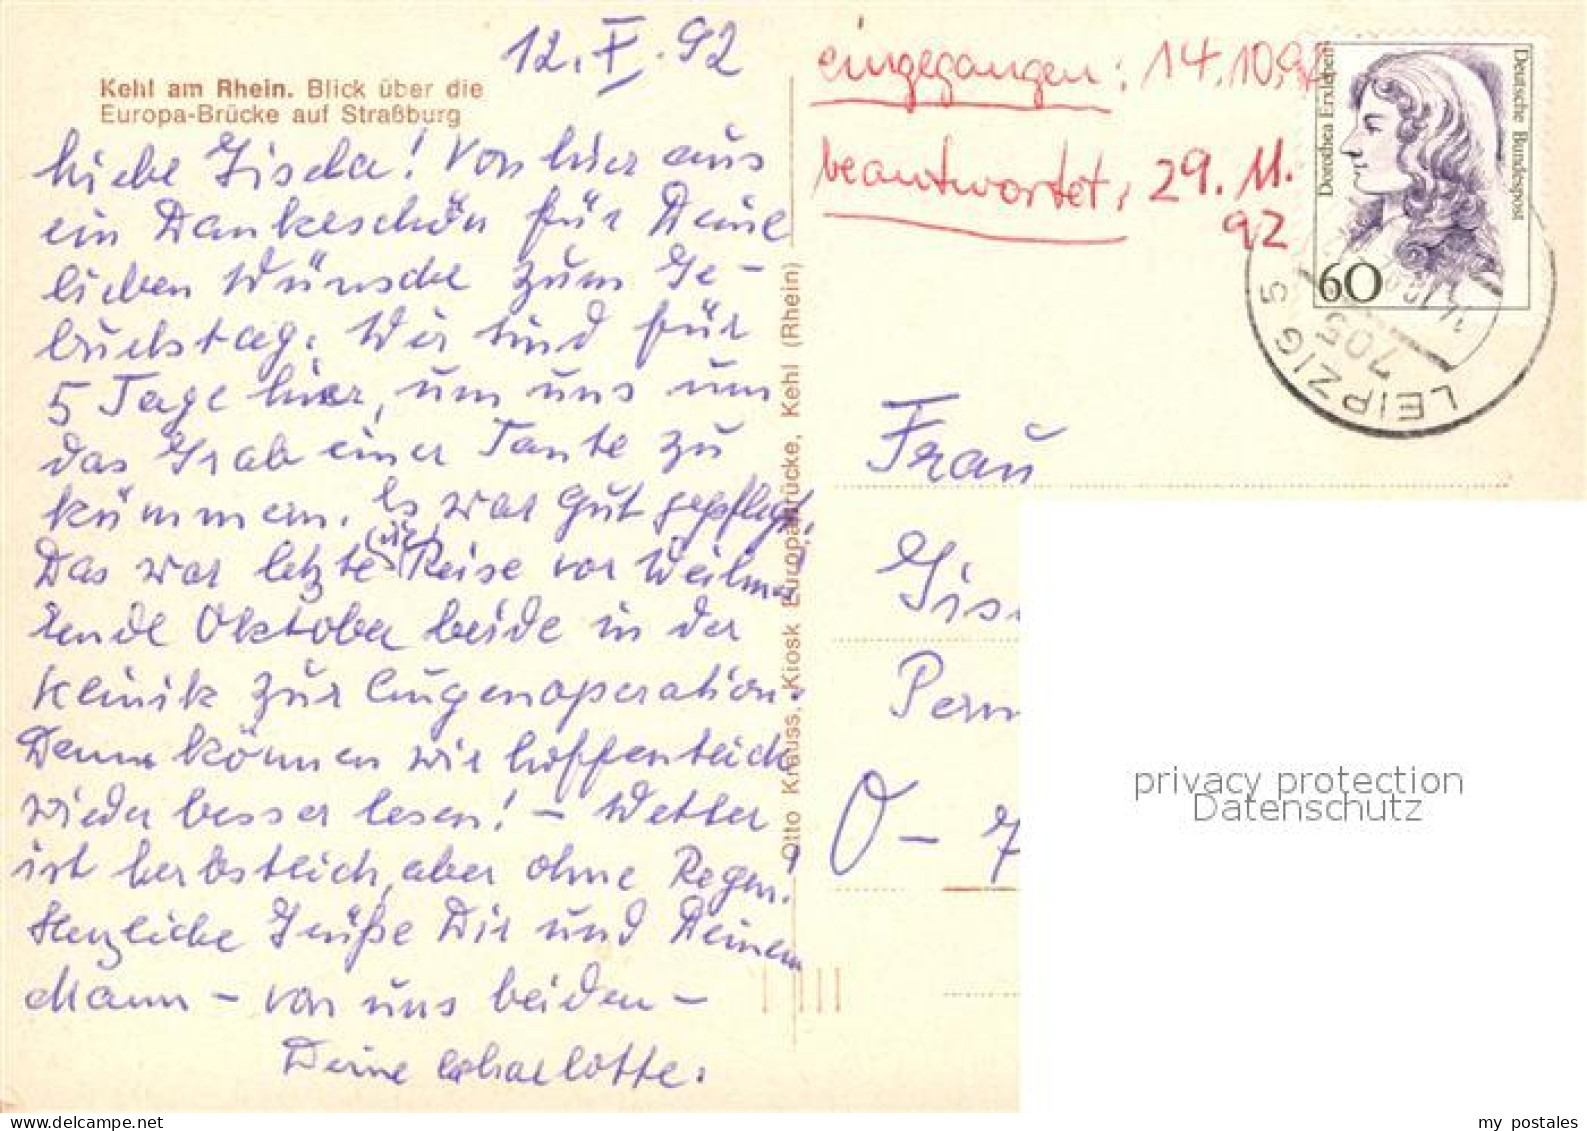 12. X. 92
Kehl am Rhein. Blick über die
Europa-Brücke auf Straßburg
Liebe Gisela! Von hier aus
ein Dankeschön für Deine
lieben Wünsche zum Ge-
burtstag. Wir sind für
5 Tage hier, um uns um
das Grab einer Tante zu
kümmern. Es war gut gepflegt.
Das war letzte Reise vor
Ende Oktober beide in der
Klinik zur Augenoperation.
Dann können wir hoffentlich
wieder besser lesen! – Wetter
ist herbstlich, aber ohne Regen.
Herzliche Grüße Dir und Deinem
Mann – von uns beiden –
Deine Charlotte.
Otto Krauss, Kiosk Europabrücke, Kehl (Rhein)
eingegangen: 14.10.92
beantwortet: 29. 11.
92
Dorothea Erxleben
Deutsche Bundespost
60
LEIPZIG 5
705
Frau
Gis
Pern
O – 7
privacy protection
Datenschutz
my postales